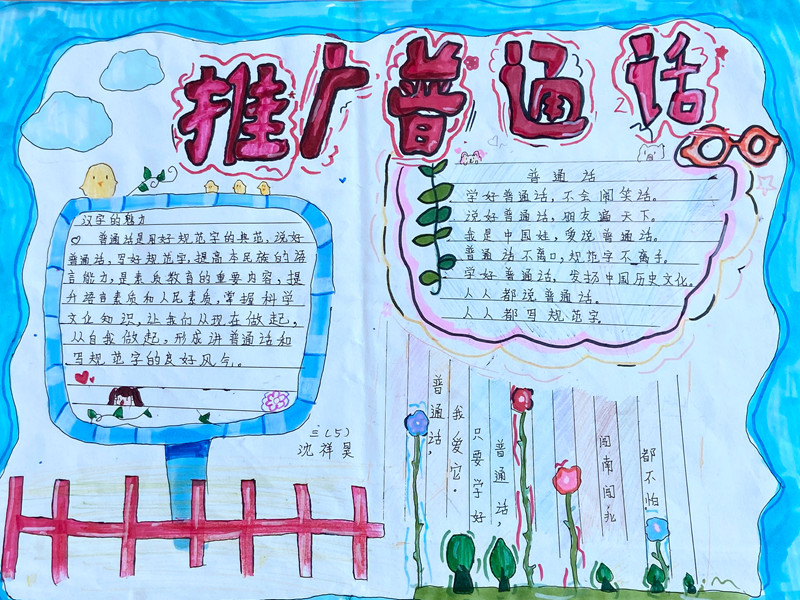 推广普通话
汉字的魅力
普通话是用好规范字的典范,说好
普通话,写好规范字,提高本民族的语
言能力,是素质教育的重要内容,提
升语言素质和人民素质,掌握科学
文化知识,让我们从现在做起,
从自我做起,形成讲普通话和
写规范字的良好风气。
三(5)
沈祥昊
普通话
学好普通话,不会闹笑话。
说好普通话,朋友遍天下。
我是中国娃,爱说普通话。
普通话不离口,规范字不离手。
学好普通话,发扬中国历史文化。
人人都说普通话。
人人都写规范字
普通话,
我爱它。
只要学好
普通话,
闽南闽北
都不怕